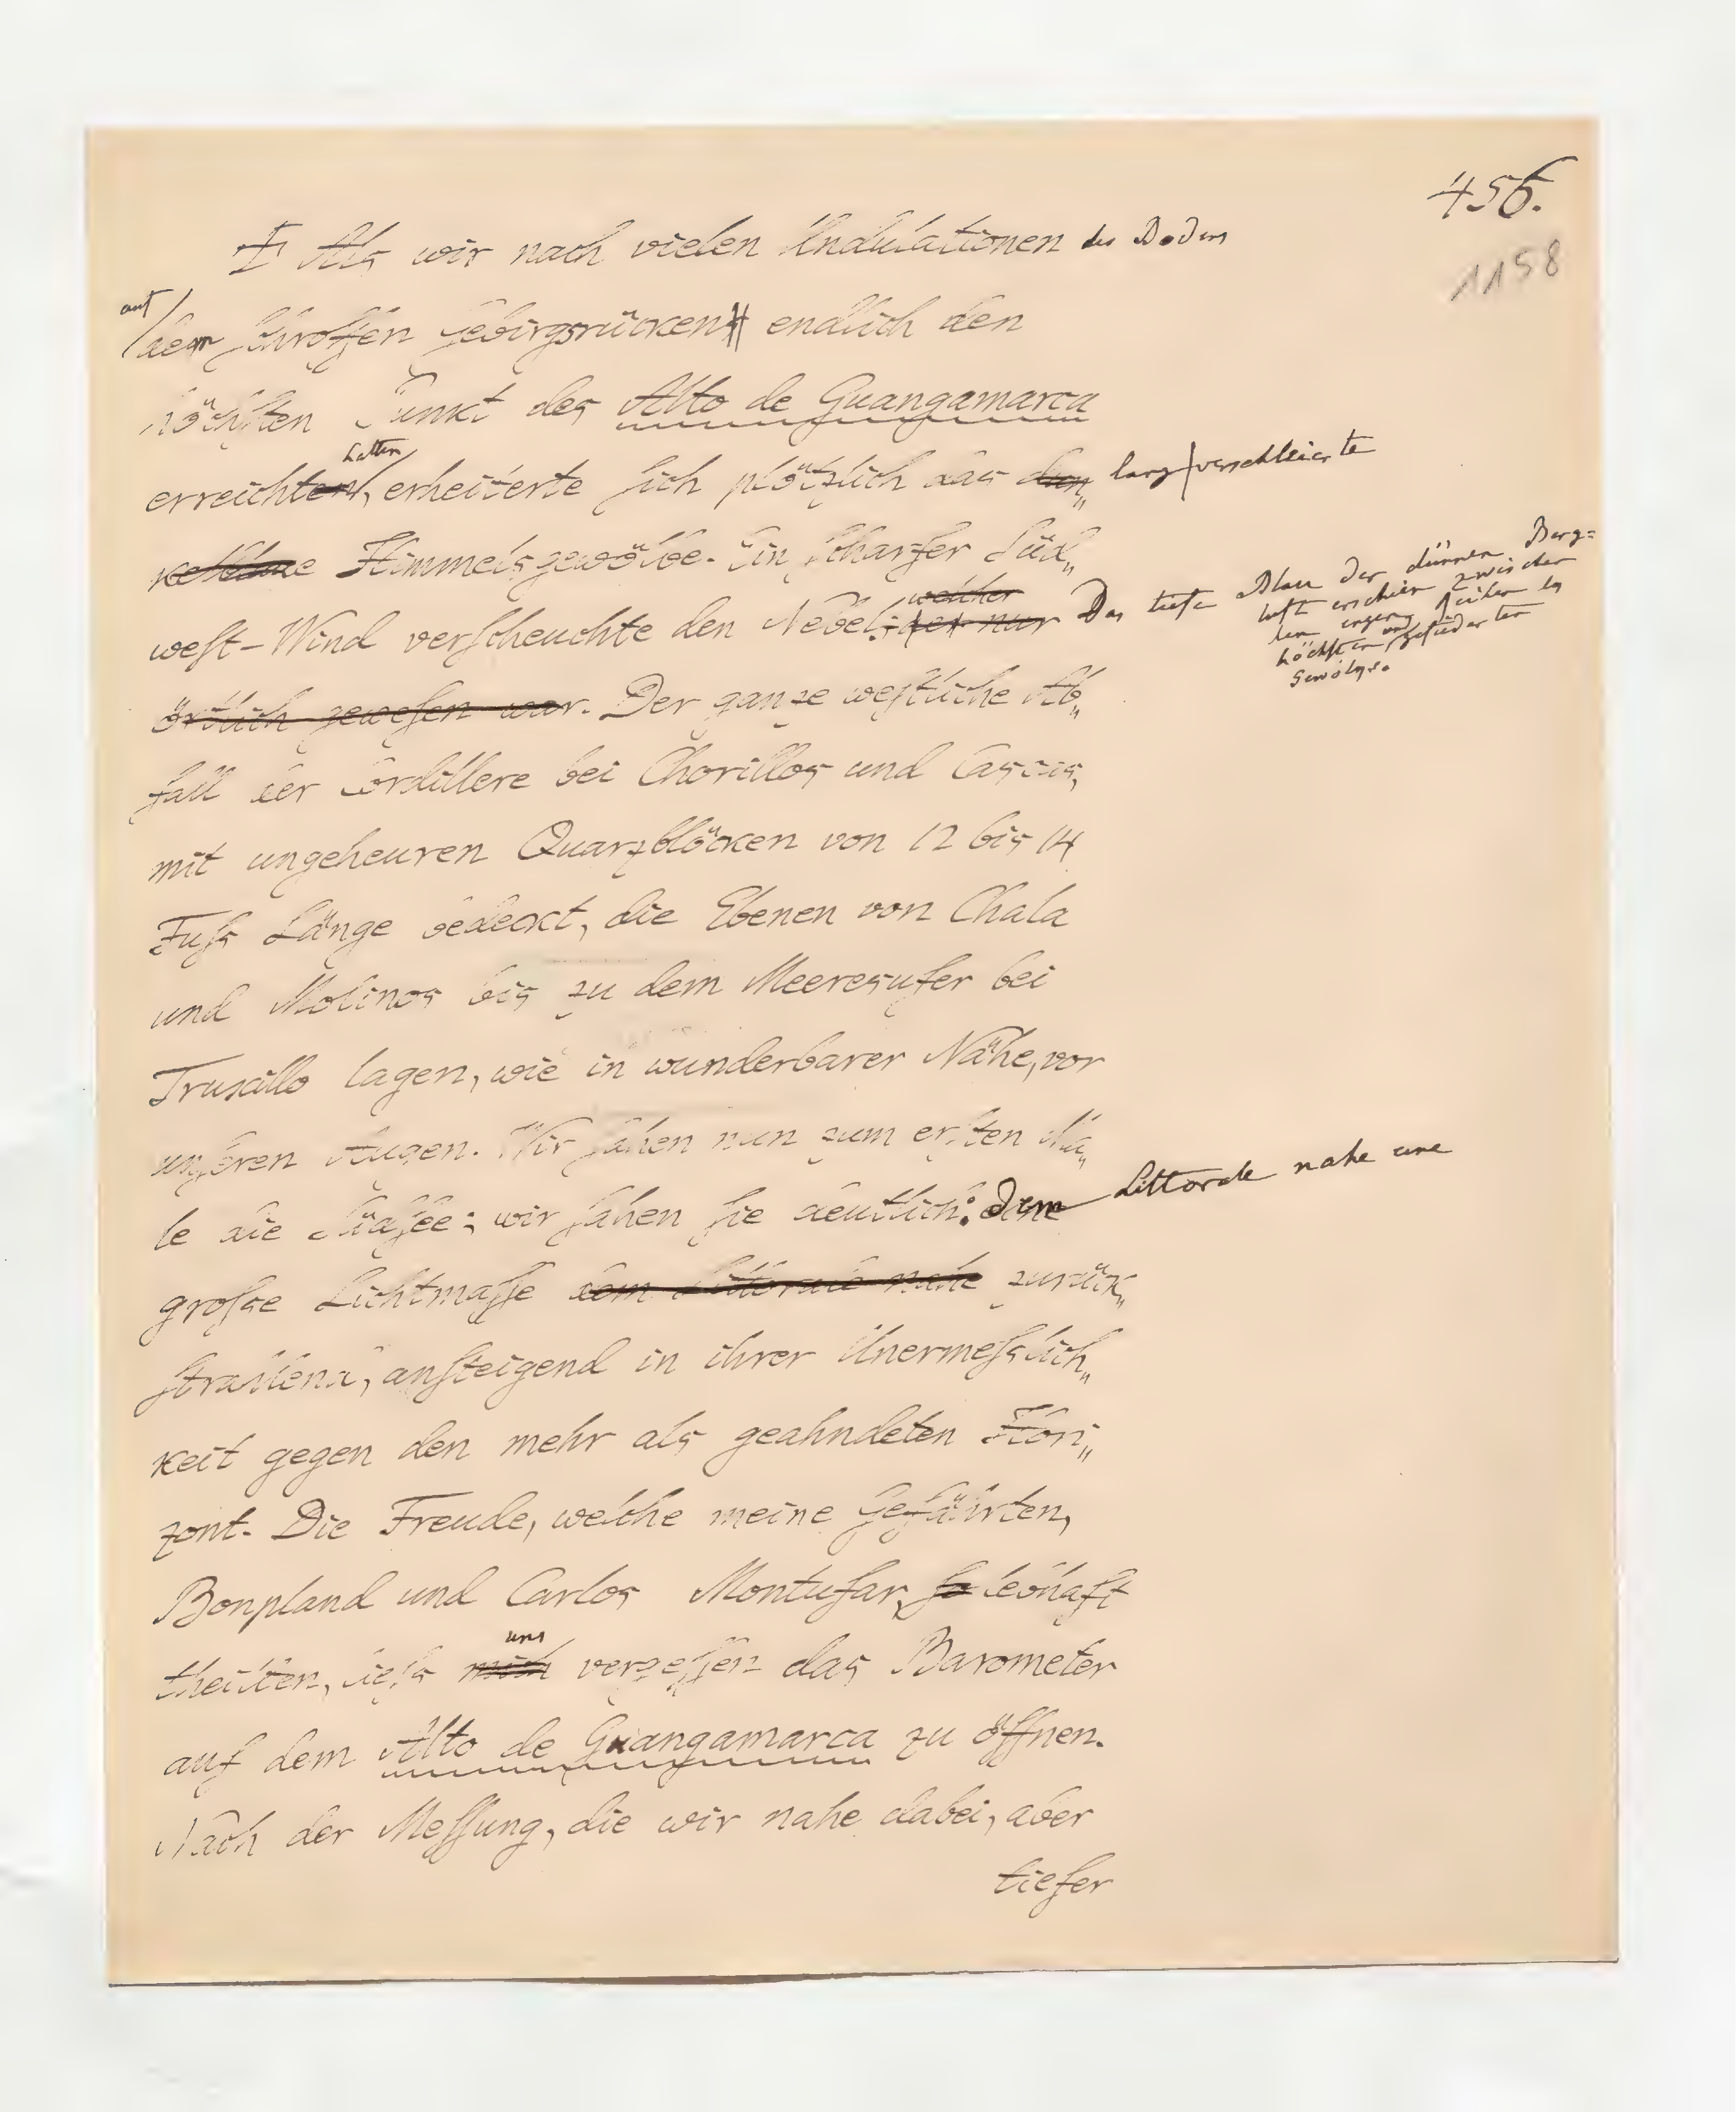 456.
1158
Als wir nach vielen Undulationen des Bodens
auf
dem schroffen Gebirgsrücken endlich den
höchsten Punkt des Alto de Guangamarca
hatten
erreichten, erheiterte sich plötzlich das dun„ lang verschleierte
kelblaue Himmelsgewölbe. Ein scharfer Süd„
welcher
west-Wind verscheuchte den Nebel, der nur Das tiefe Blau der dünnen Berg=
luft erschien zwischen
den engen Reihen der
höchsten und gefiederten
Gewölge.
örtlich gewesen war. Der ganze westliche Ab„
fall der Cordillere bei Chorillos und Cascas,
mit ungeheuren Quarzblöcken von 12 bis 14
Fuſs Länge bedeckt, die Ebenen von Chala
und Molinos bis zu dem Meeresufer bei
Truxillo lagen, wie in wunderbarer Nähe, vor
unseren Augen. Wir sahen nun zum ersten Ma„
le die Südsee; wir sahen sie deutlich: dem Littorale nahe eine
groſse Lichtmasse dem Littorale nahe zurück„
strahlend, ansteigend in ihrer Unermeſslich„
keit gegen den mehr als geahndeten Hori„
zont. Die Freude, welche meine Gefährten,
Bonpland und Carlos Montufar, so lebhaft
uns
theilten, lieſs mich vergessen das Barometer
auf dem Alto de Guangamarca zu öffnen.
Nach der Messung, die wir nahe dabei, aber
tiefer